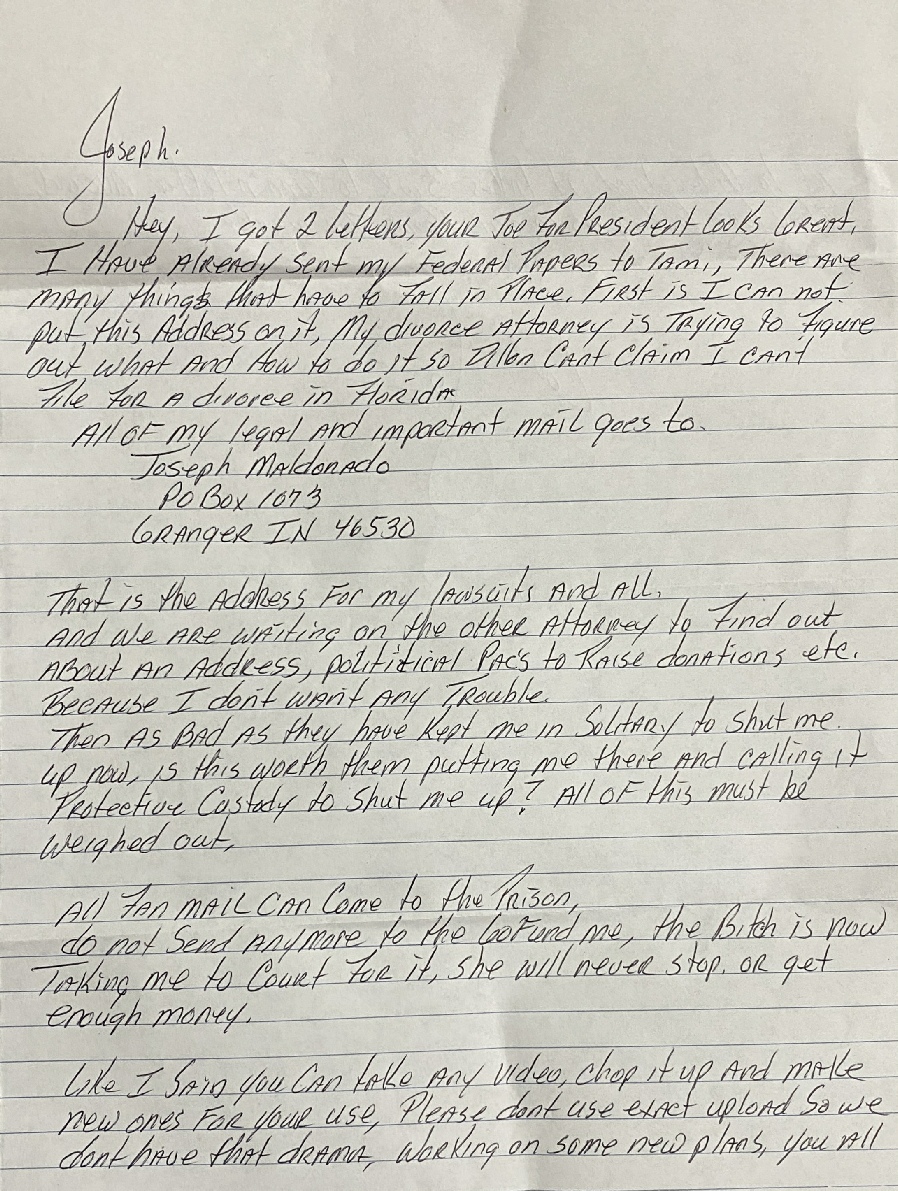 Joseph.
Hey, I got 2 letters, your Joe For President looks Great,
I Have Already sent my Federal Papers to Tami, There are
many things that have to Fall in Place. First is I can not
put this Address on it, My divorce Attorney is Trying to Figure
out what And How to do it so Dillon Cant Claim I cant
File for A divorce in Florida
All of my legal and important mail goes to.
Joseph Maldonado
PO Box 1073
Granger IN 46530
That is the Address For my lawsuits And All.
And we are waiting on the other Attorney to Find out
About An Address, politicial Pac's to Raise donations etc.
Because I don't want Any Trouble.
Then As Bad As they have kept me in Solitary to shut me
up now, is this worth them putting me there And calling it
Protective Custody to shut me up? All of this must be
weighed out,
All Fan mail Can Come to the Prison,
do not Send Anymore to the GoFund me, the Bitch is now
Taking me to Court For it, she will never stop. or get
enough money.
Like I Said you Can take Any video, chop it up And make
new ones For your use, Please dont use exact upload So we
dont have that drama, working on some new plans, you All